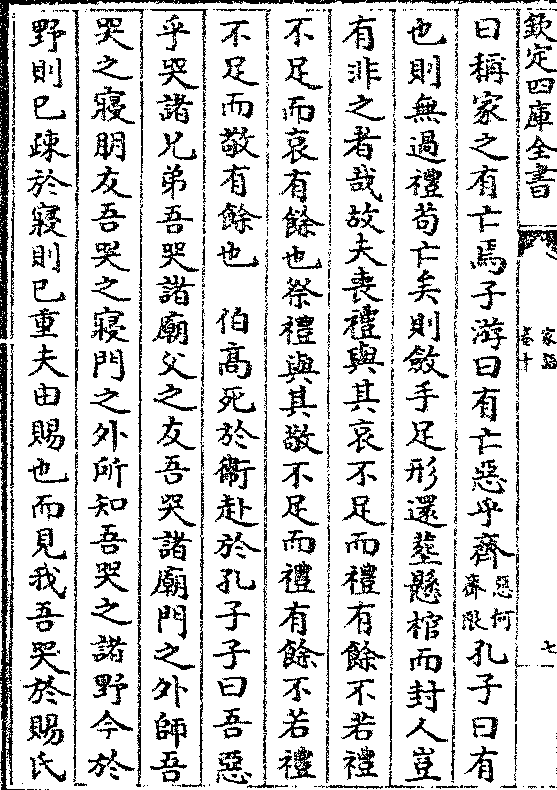 欽定四庫全書
家語
卷十
七
曰稱家之有亡焉子游曰有亡惡乎齊惡何齊限孔子曰有
也則無過禮苟亡矣則斂手足形還塟懸棺而封人豈
有非之者哉故夫喪禮與其哀不足而禮有餘不若禮
不足而哀有餘也祭禮與其敬不足而禮有餘不若禮
不足而敬有餘也 伯高死於衞赴於孔子子曰吾惡
乎哭諸兄弟吾哭諸廟父之友吾哭諸廟門之外師吾
哭之寢朋友吾哭之寢門之外所知吾哭之諸野今於
野則已疎於寢則已重夫由賜也而見我吾哭於賜氏